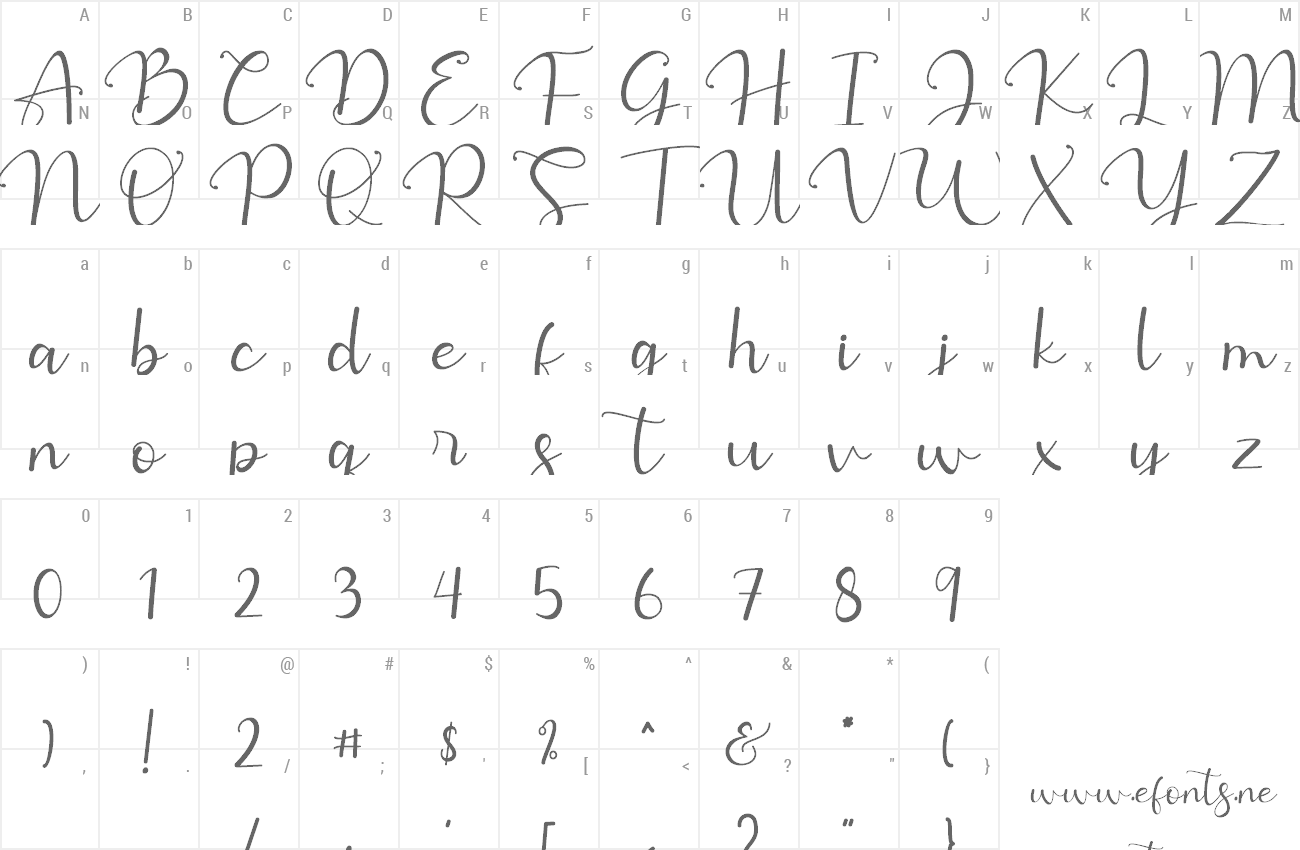 A B C D E F G H I J K L M
A B C D E F G H I J K L M
N O P Q R S T U V W X Y Z
N O P Q R S T U V W X Y Z
a b c d e f g h i j k l m
a b c d e f g h i j k l m
n o p q r s t u v w x y z
n o p q r s t u v w x y z
0 1 2 3 4 5 6 7 8 9
0 1 2 3 4 5 6 7 8 9
) ! @ # $ % ^ & * (
) ! 2 # $ % ^ & * (
, . / ; ' [ < ? " }
/ ; ' [ < ? " }
www.efonts.ne
t